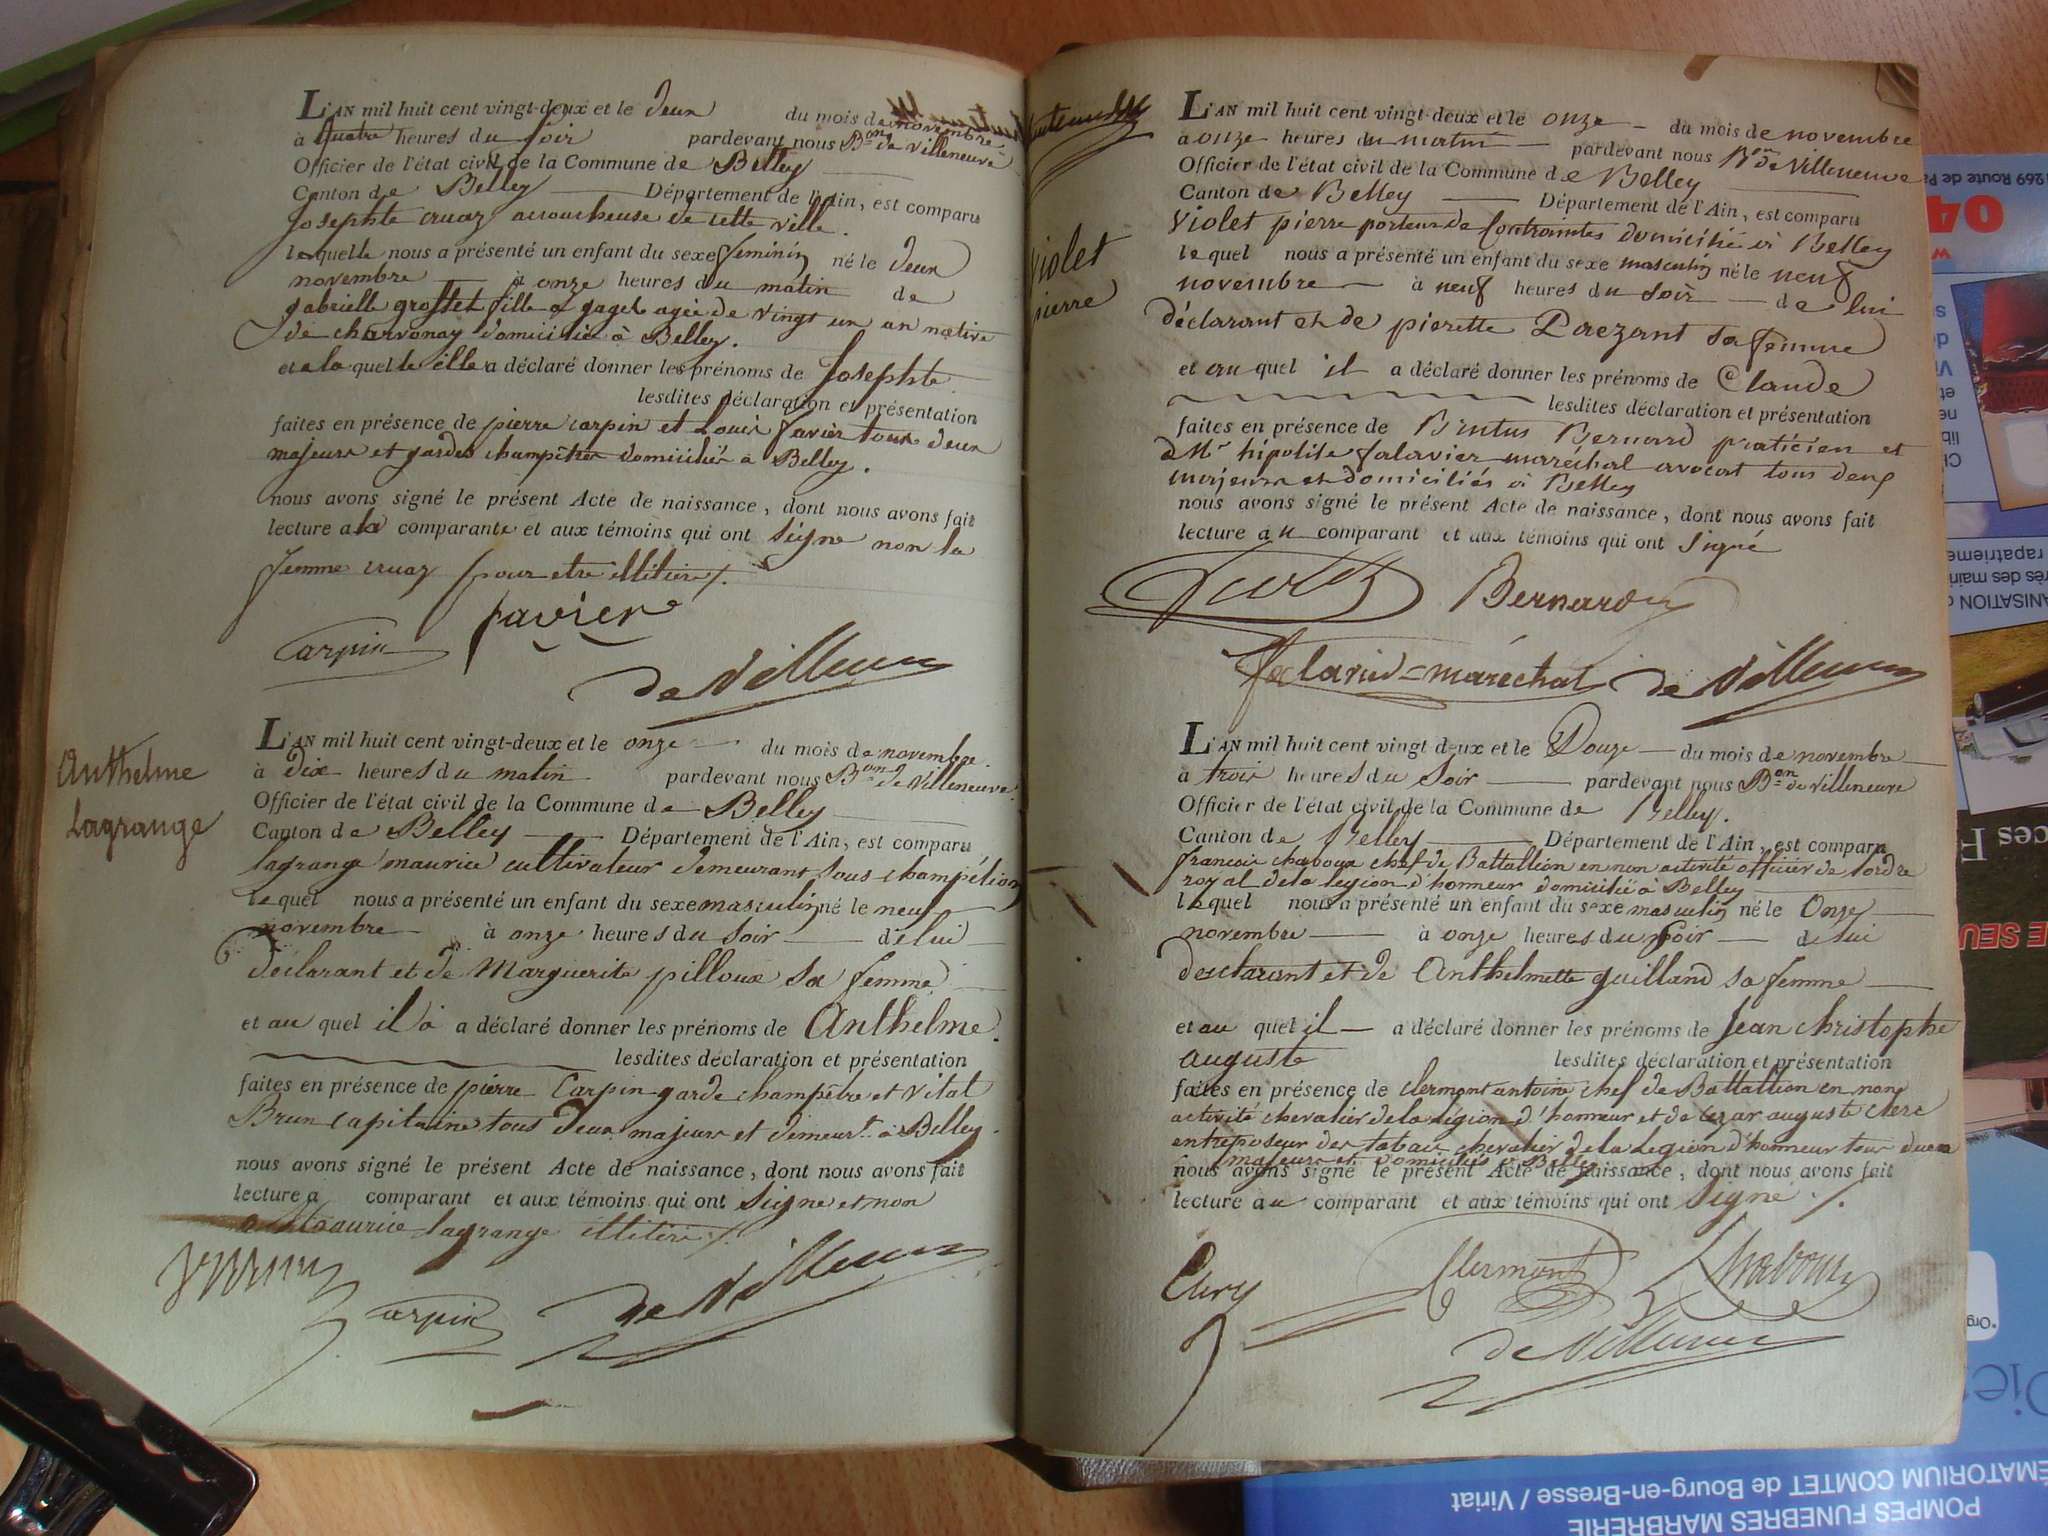 L'AN mil huit cent vingt-deux et le deux du mois de novembre
à quatre heures du soir pardevant nous Bon de Villeneuve
Officier de l'état civil de la Commune de Belley
Canton de Belley Département de l'Ain, est comparu
Josephte cruaz accoucheuse de cette ville.
lequelle nous a présenté un enfant du sexe feminin né le deux
novembre à onze heures du matin de
gabrielle grosset fille a gages agée de vingt un an native
de charvonay domiciliée à Belley.
et a la quelle elle a déclaré donner les prénoms de Josephte
lesdites déclaration et présentation
faites en présence de pierre carpin et Louis favier tous deux
majeurs et gardes champêtres domiciliés a Belley.
nous avons signé le présent Acte de naissance, dont nous avons fait
lecture a la comparante et aux témoins qui ont signe non la
femme cruaz pour etre illitere ./.
favier
Carpin
de Villeneuve
Anthelme
Lagrange
L'AN mil huit cent vingt-deux et le onze du mois de novembre
à dix heures du matin pardevant nous Bon de Villeneuve
Officier de l'état civil de la Commune de Belley
Canton de Belley Département de l'Ain, est comparu
lagrange maurice cultivateur demeurant sous champélion
lequel nous a présenté un enfant du sexe masculin né le neuf
novembre à onze heures du soir de lui
déclarant et de Marguerite pilloux sa femme
et au quel il a a déclaré donner les prénoms de Anthelme.
lesdites déclaration et présentation
faites en présence de pierre Carpin garde champêtre et vital
Brun capitaine tous deux majeurs et demeurt. à Belley.
nous avons signé le présent Acte de naissance, dont nous avons fait
lecture a comparant et aux témoins qui ont signe et non
Maurice lagrange illitere ./.
Carpin
de Villeneuve
Violet
pierre
L'AN mil huit cent vingt-deux et le onze du mois de novembre
à onze heures du matin pardevant nous Bon de Villeneuve
Officier de l'état civil de la Commune de Belley
Canton de Belley Département de l'Ain, est comparu
Violet pierre porteur de Contraintes domicilié à Belley
lequel nous a présenté un enfant du sexe masculin né le neuf
novembre à neuf heures du soir de lui
déclarant et de pierette Paezant sa femme
et au quel il a déclaré donner les prénoms de Claude
lesdites déclaration et présentation
faites en présence de Brutus Bernard praticien et
de Mr hipolite falavier maréchal avocat tous deux
majeurs et domiciliés à Belley
nous avons signé le présent Acte de naissance, dont nous avons fait
lecture au comparant et aux témoins qui ont signé
Violet
Bernard
falavier-maréchal
de Villeneuve
L'AN mil huit cent vingt deux et le Douze du mois de novembre
à trois heures du soir pardevant nous Bon de Villeneuve
Officier de l'état civil de la Commune de Belley.
Canton de Belley Département de l'Ain, est comparu
francois chaboux chef de Battallion en non activité officier de lordre
royal de la legion d'honneur domicilié à Belley
lequel nous a présenté un enfant du sexe masculin né le Onze
novembre à onze heures du soir de lui
desclarant et de Anthelmette guilland sa femme
et au quel il a déclaré donner les prénoms de Jean christophe
auguste lesdites déclaration et présentation
faites en présence de clermont antoine chef de Battallion en non
activité chevalier de la legion d'honneur et de cezar auguste clerc
entreposeur des tabacs chevalier de la legion d'honneur tous deux
majeurs et domiciliés a Belley
nous avons signé le présent Acte de naissance, dont nous avons fait
lecture au comparant et aux témoins qui ont signé ./.
Clermont
Chaboux
de Villeneuve
269 Route de
04
E SEU
*Org
POMPES FUNEBRES MARBRERIE
ÉMATORIUM COMTET de Bourg-en-Bresse / Viriat